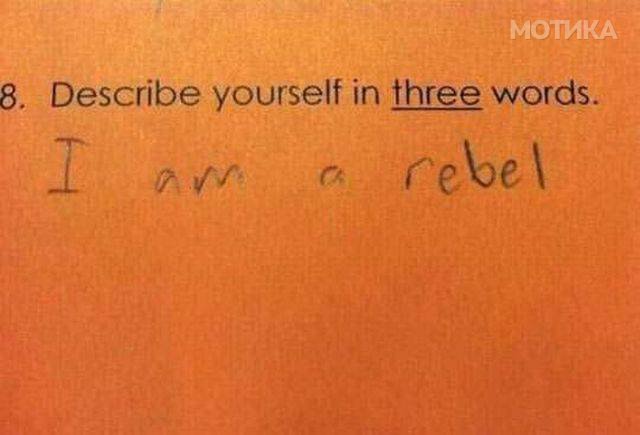 МОТИКА
8. Describe yourself in three words.
I am a rebel